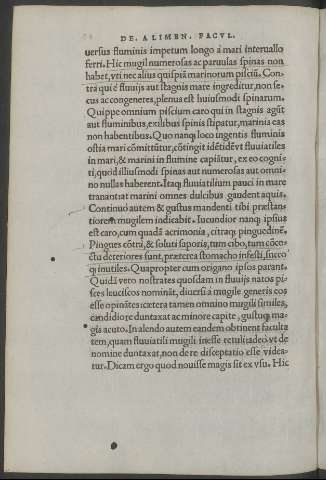 DE ALIMEN. FACVL.
uersus fluminis impetum longo à mari interuallo
ferri. Hic mugil numerosas ac paruulas spinas non
habet, vti nec alius quispiã marinorum pisciũ. Con-
trà qui è fluuijs aut stagnis mare ingreditur, non se-
cus ac congeneres, plenus est huiusmodi spinarum.
Quippe omnium piscium caro qui in stagnis agũt
aut fluminibus, exilibus spinis stipatur, marinis eas
non habentibus. Quo nanq; loco ingentis fluminis
ostia mari cõmittũtur, cõtingit idẽtidẽ vt fluuiatiles
in mari, & marini in flumine capiãtur, ex eo cogni-
ti, quòd illi usmodi spinas aut numerosas aut omni-
no nullas haberent. Itaq; fluuiatilium pauci in mare
tranant, at marini omnes dulcibus gaudent aquis.
Continuò autem & gustus mandenti tibi præstan-
tiorem mugilem indicabit. Iucundior nanq; ipsius
est caro, cum quadã acrimonia, citraq; pinguedinẽ.
Pingues cõtrà, & soluti saporis, tum cibo, tum cõco-
ctu deteriores sunt, præterea stomacho infesti, succo
q; inutiles. Quapropter cum origano ipsos parant.
Quidã vero nostrates quosdam in fluuijs natos pi-
sces leuciscos nominãt, diuersi à mugile generis eos
esse opinãtes cætera tamen omnino mugili similes,
candidiore duntaxat ac minore capite, gustuq; ma-
gis acuto. In alendo autem eandem obtinent faculta
tem, quam fluuiatili mugili inesse retuli: adeo vt de
nomine duntaxat, non de re disceptatio esse videa-
tur. Dicam ergo quod nouisse magis sit ex vsu. Hic